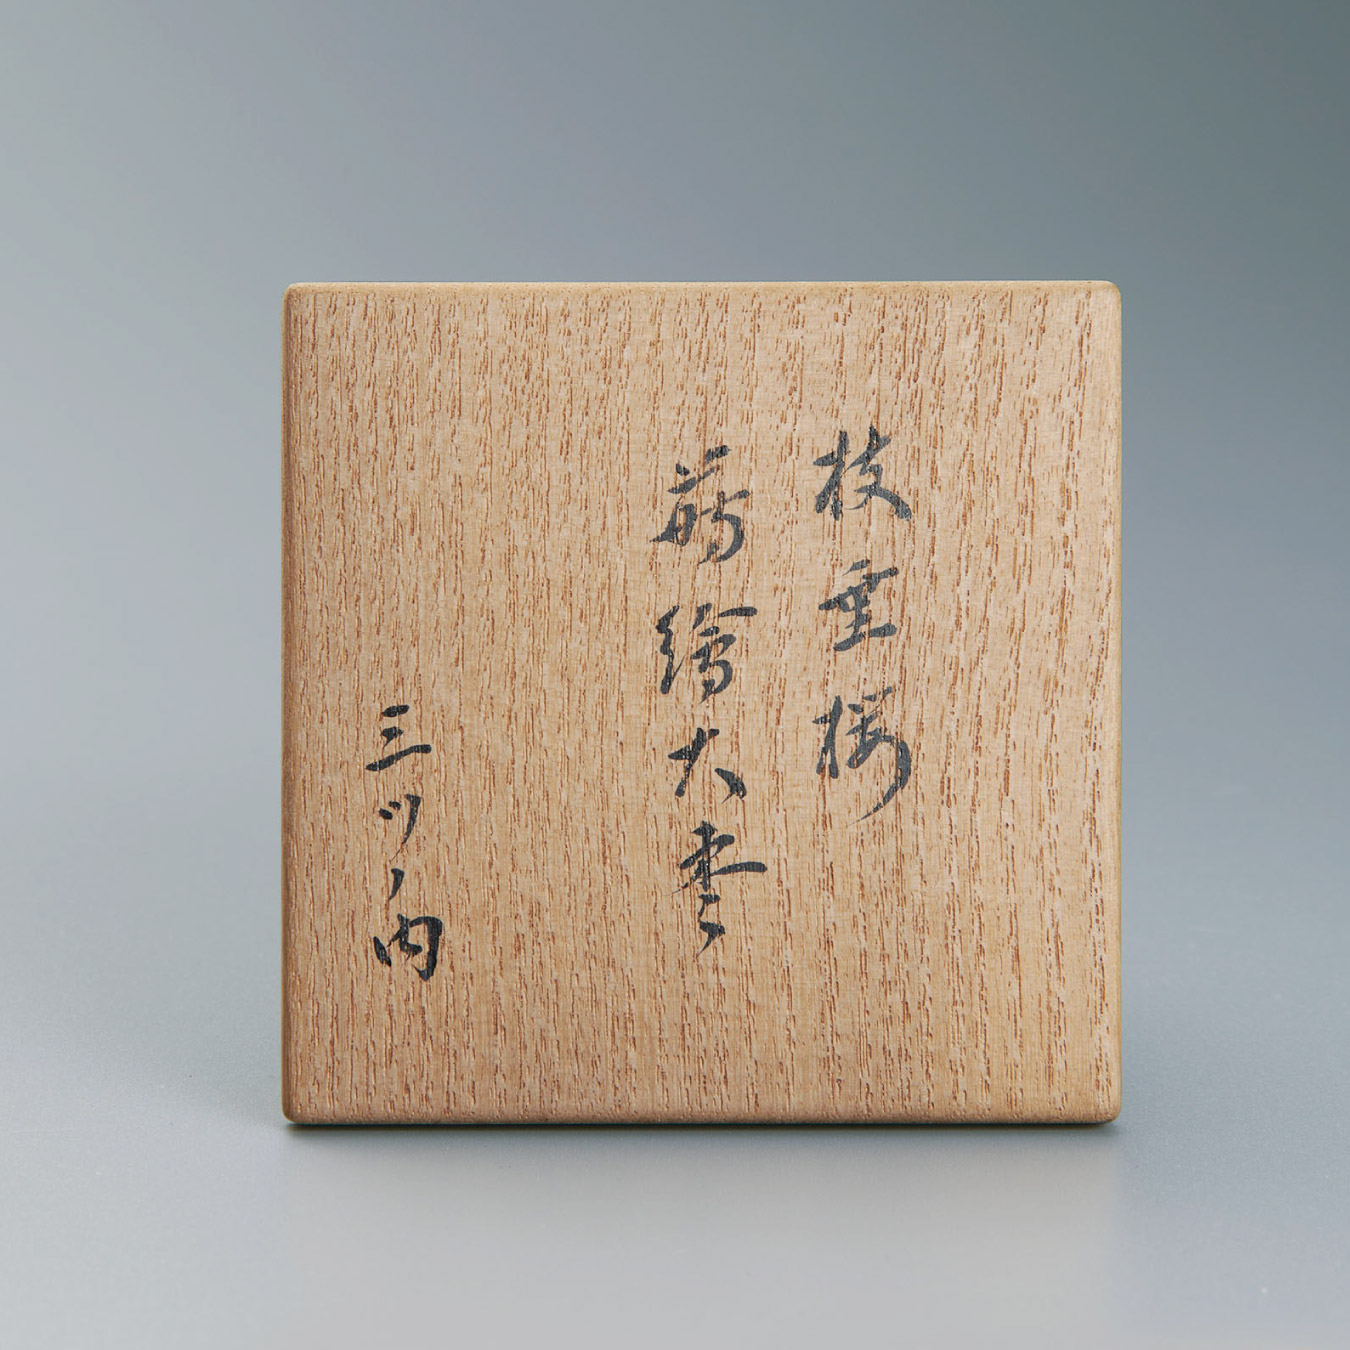 枝垂桜
蒔繪大棗
三ツノ内